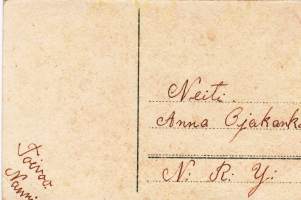 Toivoo
Nanni
Neiti.
Anna Ojakank
N: R: Y: